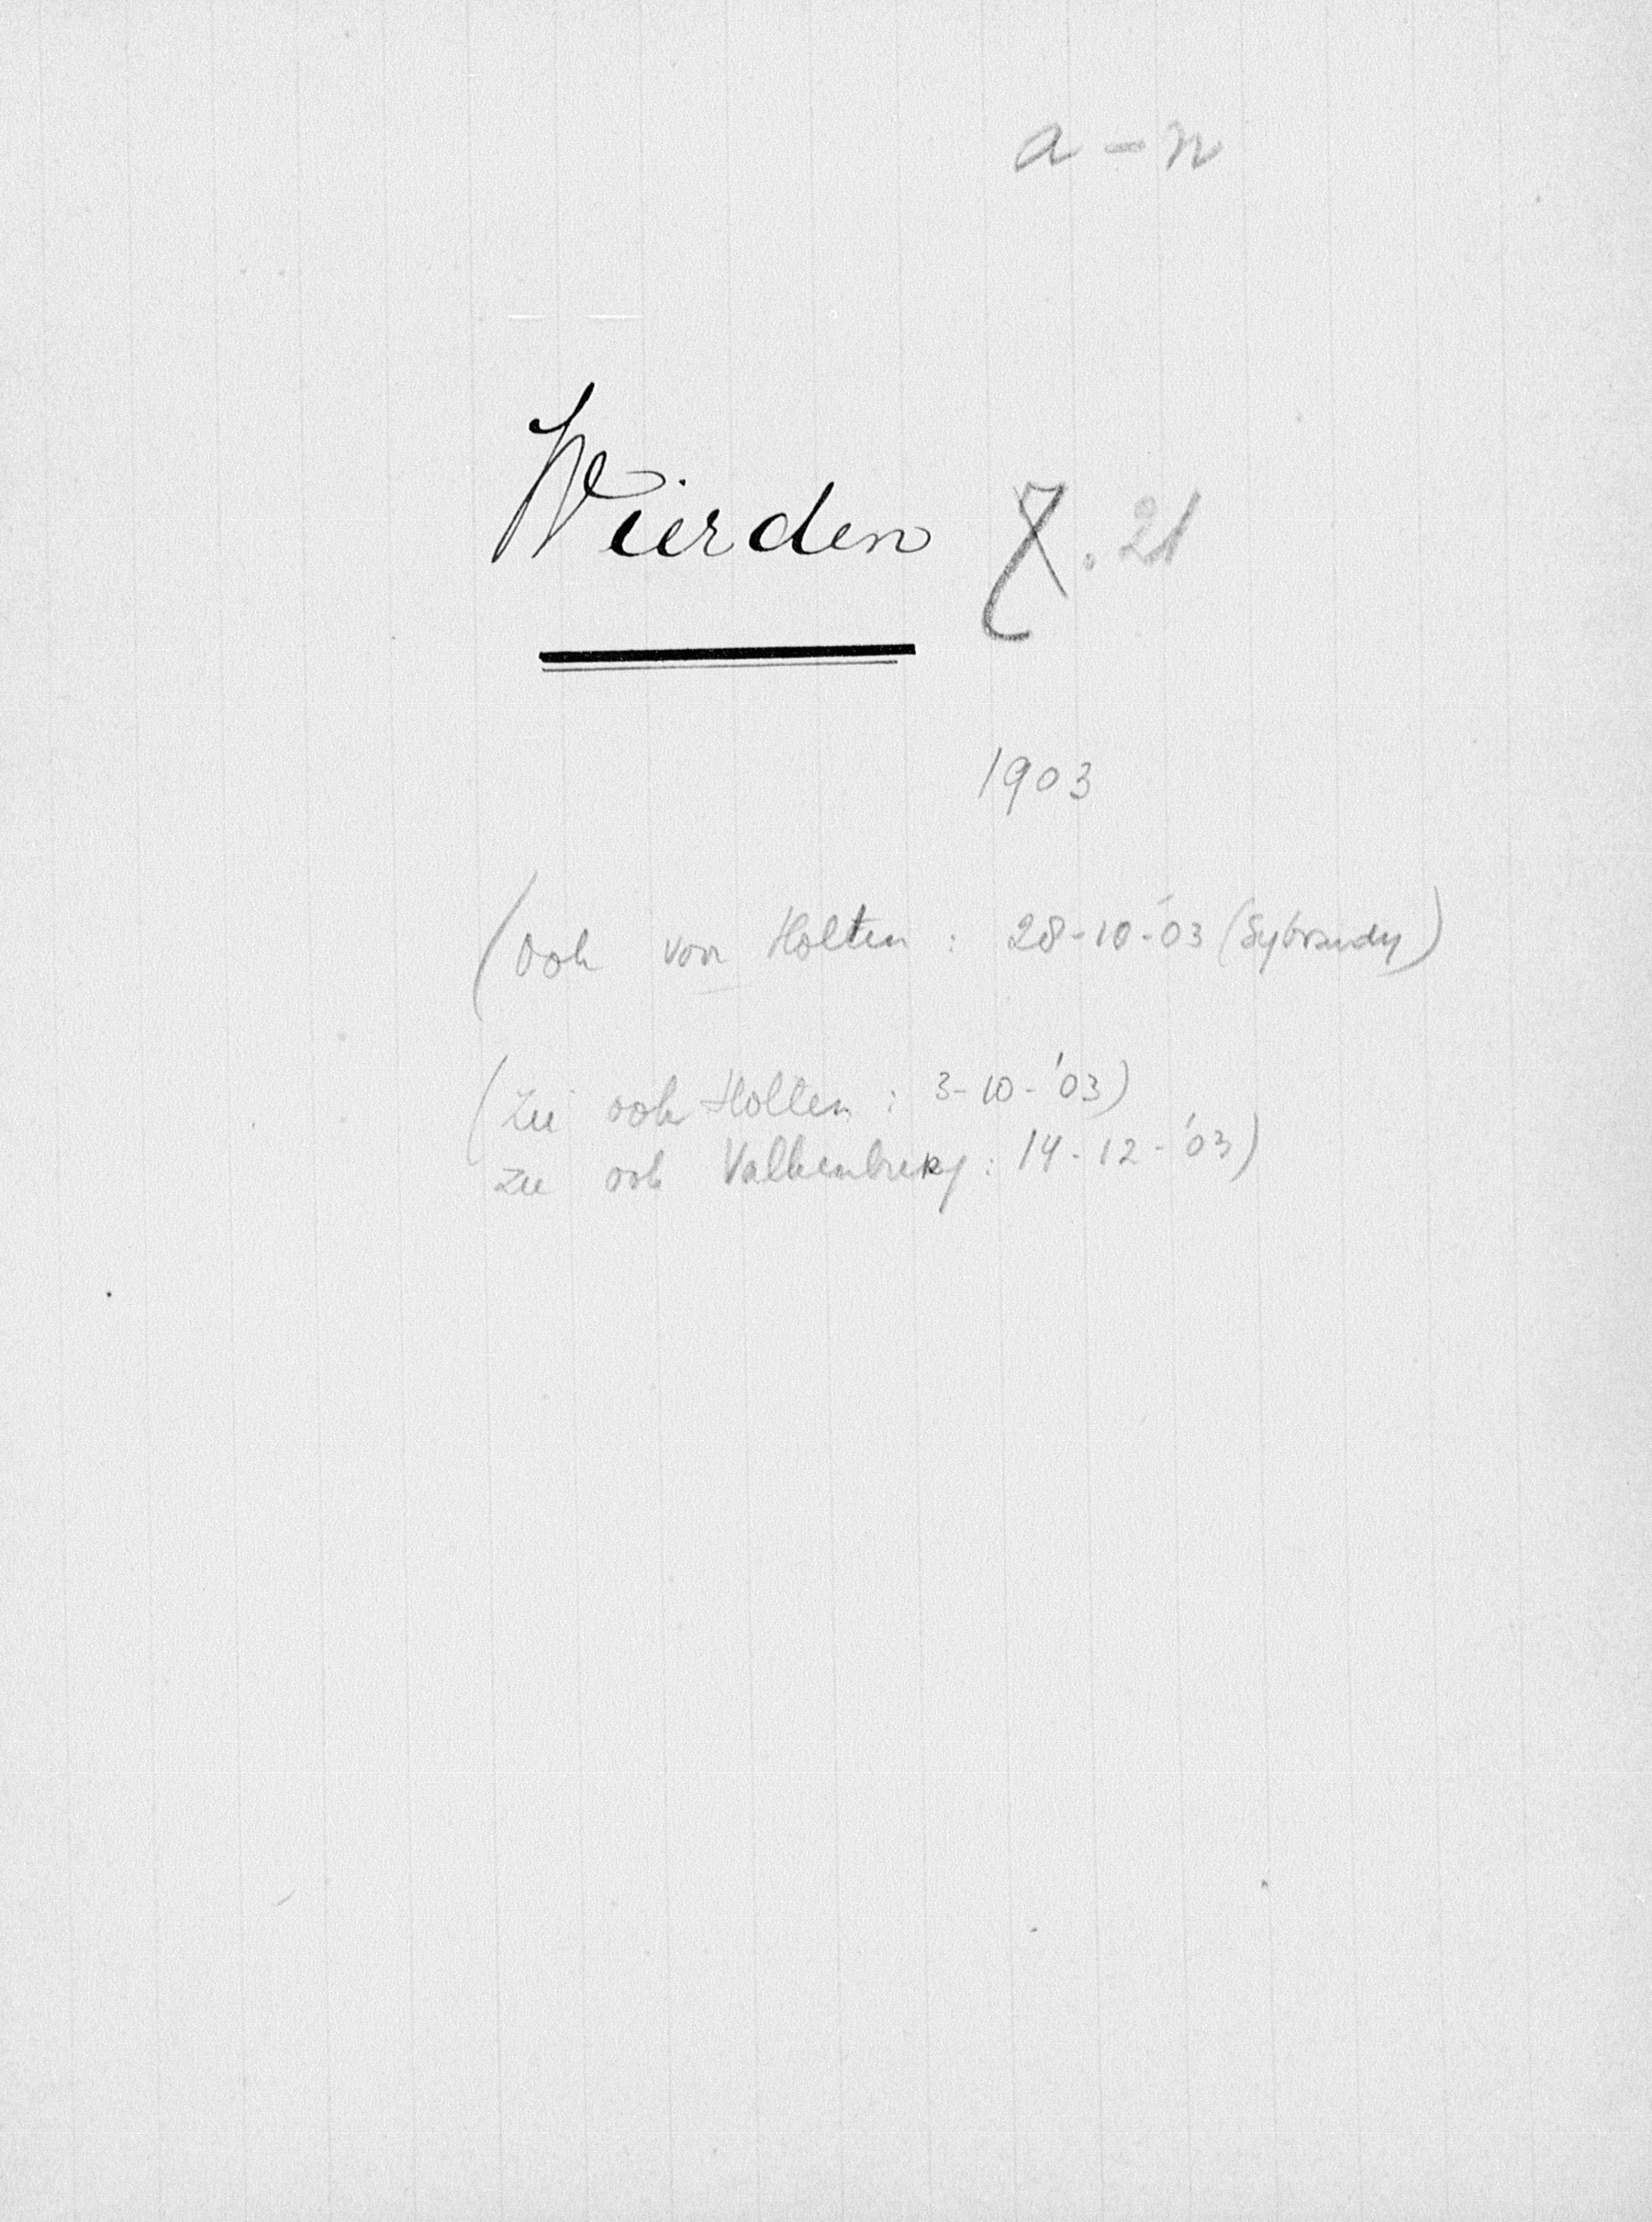 a - n
Wierden 7. 21
1903
(Ook voor Holten : 28-10-'03 (Sybrandy)
(Zie ook Holten : 3-10-'03)
Zie ook Valkenburg : 14-12-'03)